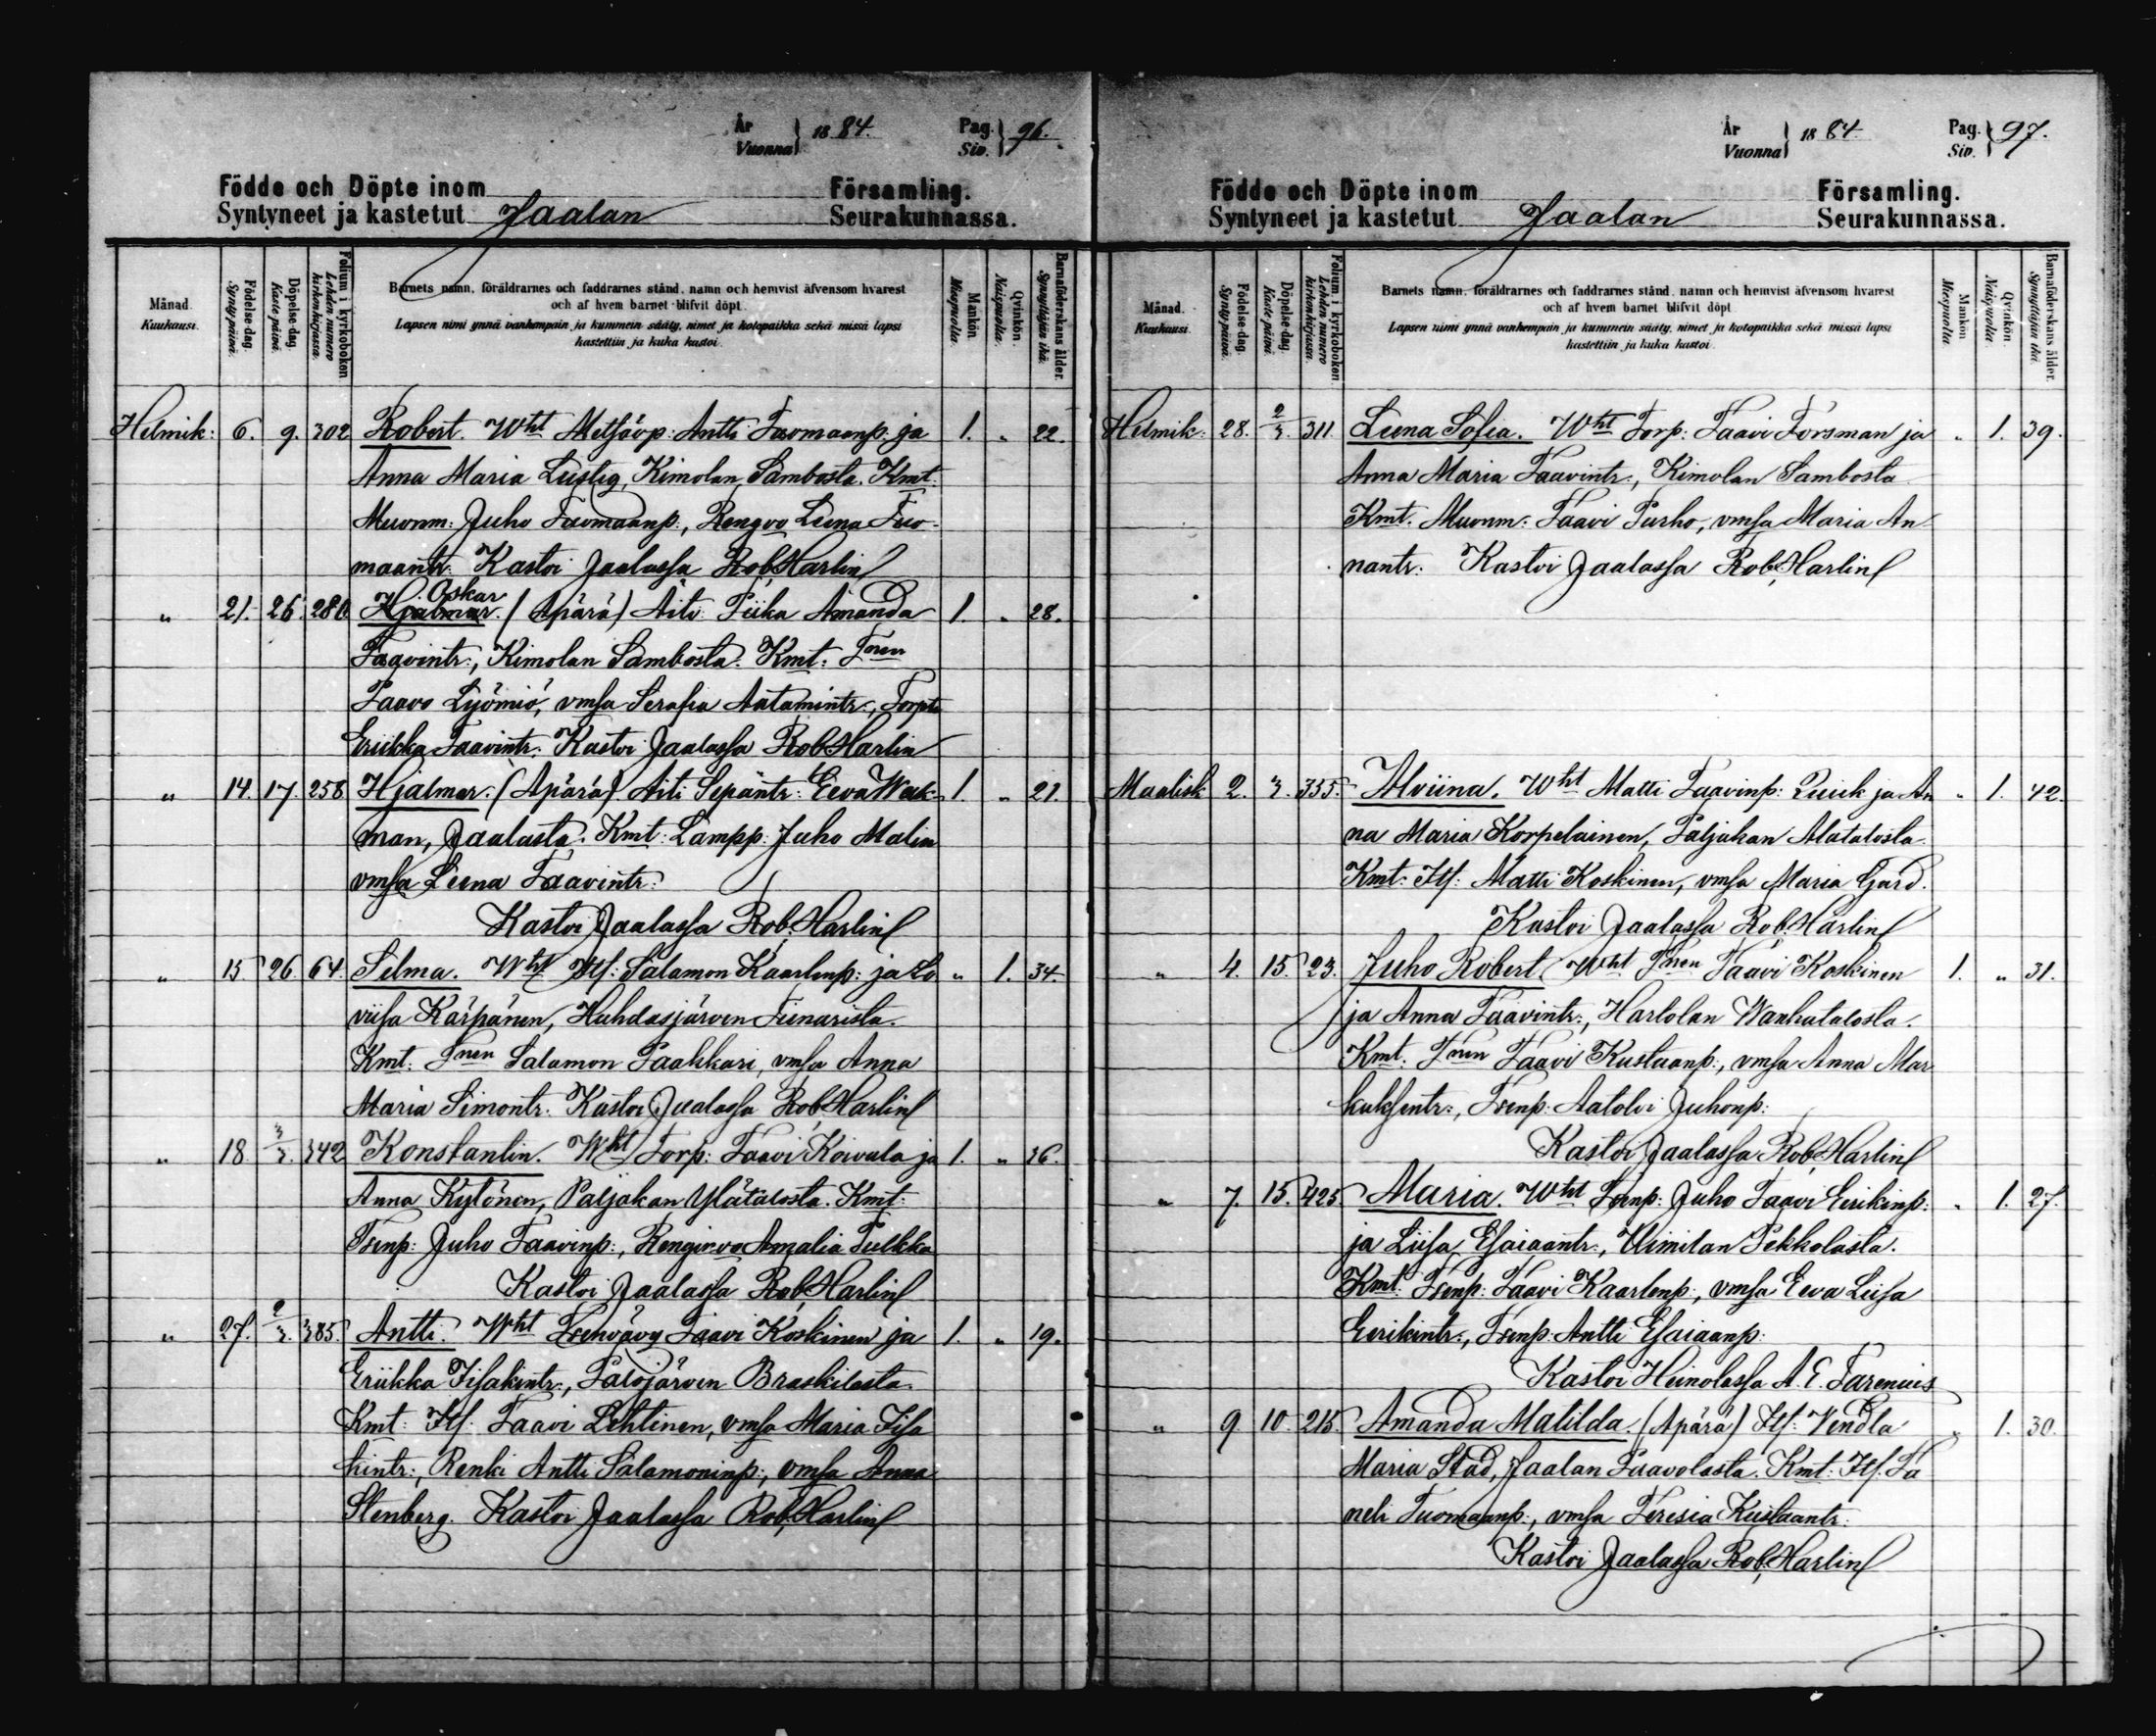 År Vuonna } 1884. Pag. Siv. } 96.
Födde och Döpte inom Församling.
Syntyneet ja kastetut Jaalan Seurakunnassa.
Månad. Kuukausi.
Födelse-dag. Synty päivä.
Döpelse-dag. Kaste päivä.
Folium i kyrkoboken Lehden numero kirkonkirjassa.
Barnets namn, föräldrarnes och faddrarnes stånd, namn och hemvist äfvensom hvarest
och af hvem barnet blifvit döpt.
Lapsen nimi ynnä vanhempain ja kummein sääty, nimet ja kotopaikka sekä missä lapsi
kastettiin ja kuka kastoi.
Mankön Miespuolia.
Qvinkön. Naispuolia.
Barnaföderskans ålder. Synnyttäjän ikä.
Helmik: 6. 9. 302 Robert. Wht Metsävp: Antti Tuomaanp. ja 1. „ 22.
Anna Maria Lustig, Kimolan Sambosta. Kmt.
Muonm: Juho Tuomaanp:, Rengvo Leena Tuo-
maantr: Kastoi Jaalassa Rob. Harlin
Oskar
„ 21. 26. 280. Hjalmar. (Äpärä) Äiti: Piika Amanda 1. „ 28.
Taavintr:, Kimolan Sambosta. Kmt: Tnen
Paavo Lyömiö, vmsa Serafia Aatamintr:, Torptr
Eriikka Taavintr: Kastoi Jaalassa Rob. Harlin
„ 14. 17. 258 Hjalmar. (Äpärä). Äiti Sepäntr: Eeva Wek- 1. „ 21.
man, Jaalasta. Kmt: Lampp: Juho Malin
vmsa Leena Taavintr:
Kastoi Jaalassa Rob. Harlin
„ 15 26. 64. Selma. Wht Itl: Salamon Kaarlenp: ja Lo „ 1. 34.
viisa Kärpänen, Huhdasjärven Tiinarista.
Kmt: Tnen Salamon Paakkari, vmsa Anna
Maria Simontr. Kastoi Jaalassa Rob. Harlin
„ 18. 3/3. 342 Konstantin. Wht Torp: Taavi Koivula ja 1. „ 36.
Anna Kytönen, Paljakan Ylätalosta. Kmt:
Tsenp: Juho Taavinp:, Renginvo Amalia Pulkka
Kastoi Jaalassa Rob. Harlin
„ 27. 2/3. 385. Antti. Wht Tsenvävy Taavi Koskinen ja 1. „ 19.
Eriikka Iisakintr:, Palojärven Braskilasta.
Kmt: Itl: Taavi Lehtinen, vmsa Maria Iisa
kintr:, Renki Antti Salamoninp:, vmsa Anna
Stenberg. Kastoi Jaalassa Rob. Harlin
År Vuonna } 1884. Pag. Siv. } 97.
Födde och Döpte inom Församling.
Syntyneet ja kastetut Jaalan Seurakunnassa.
Månad. Kuukausi.
Födelse-dag. Synty päivä.
Döpelse-dag. Kaste päivä.
Folium i kyrkoboken Lehden numero kirkonkirjassa.
Barnets namn, föräldrarnes och faddrarnes stånd, namn och hemvist äfvensom hvarest
och af hvem barnet blifvit döpt
Lapsen nimi ynnä vanhempain ja kummein sääty, nimet ja kotopaikka sekä missä lapsi
kastettiin ja kuka kastoi.
Mankön Miespuolia.
Qvinkön. Naispuolia.
Barnaföderskans ålder. Synnyttäjän ikä.
Helmik: 28. 2/3. 311. Leena Sofia. Wht Torp: Taavi Forsman ja „ 1. 39.
Anna Maria Taavintr:, Kimolan Sambosta
Kmt. Muonm: Taavi Purho, vmsa Maria An-
nantr: Kastoi Jaalassa Rob. Harlin
Maalisk 2. 3. 355. Alviina. Wht Matti Taavinp: Quick ja An „ 1. 42.
na Maria Korpelainen, Paljakan Alatalosta.
Kmt: Itl: Matti Koskinen, vmsa Maria Gard.
Kastoi Jaalassa Rob. Harlin
„ 4. 15. 23. Juho Robert Wht Tnen Taavi Koskinen 1. „ 31.
ja Anna Taavintr:, Hartolan Wanhatalosta.
Kmt: Tnen Taavi Kustaanp:, vmsa Anna Mar
kuksentr:, Tsenp: Aatolvi Juhonp:
Kastoi Jaalassa Rob. Harlin
„ 7. 15. 425 Maria. Wht Tsenp: Juho Taavi Eerikinp: „ 1. 27.
ja Liisa Esaiaantr:, Uimilan Pekkolasta.
Kmt: Tsenp: Taavi Kaarlenp:, vmsa Eeva Liisa
Eerikintr:, Tsenp: Antti Esaiaanp:
Kastoi Heinolassa A. E. Farenius
„ 9. 10. 215. Amanda Matilda. (Äpärä) Itl: Vendla „ 1. 30.
Maria Stad, Jaalan Paavolasta. Kmt: Itl: Ta
neli Tuomaanp:, vmsa Teresia Kustaantr:
Kastoi Jaalassa Rob. Harlin